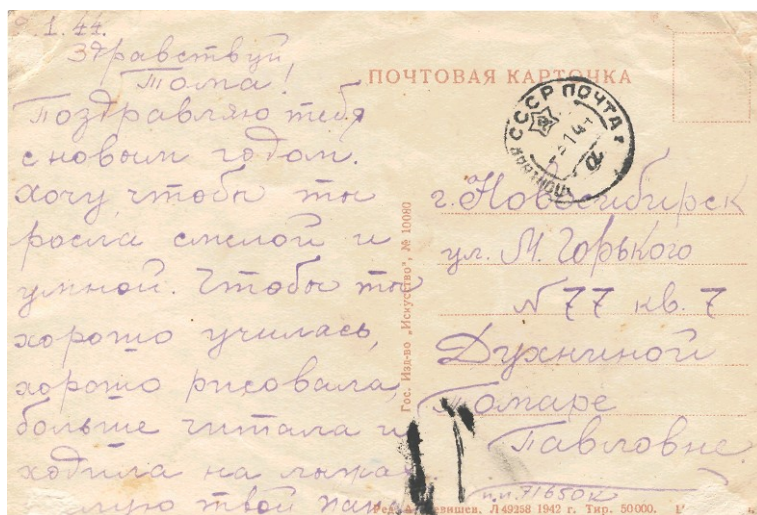 8.1.44.
Здравствуй,
Тома!
Поздравляю тебя
с новым годом.
Хочу, чтобы ты
росла смелой и
умной. Чтобы ты
хорошо училась,
хорошо рисовала,
больше читала и
ходила на лыжах
твой папа
ПОЧТОВАЯ КАРТОЧКА
СССР ПОЧТА
г. Новосибирск
ул. М. Горького
N 77 кв. 7
Духниной
Тамаре
Павловне.
п.п. 71650к
Гос. Изд-во „Искусство", № 10080
Л49258 1942 г. Тир. 50000.